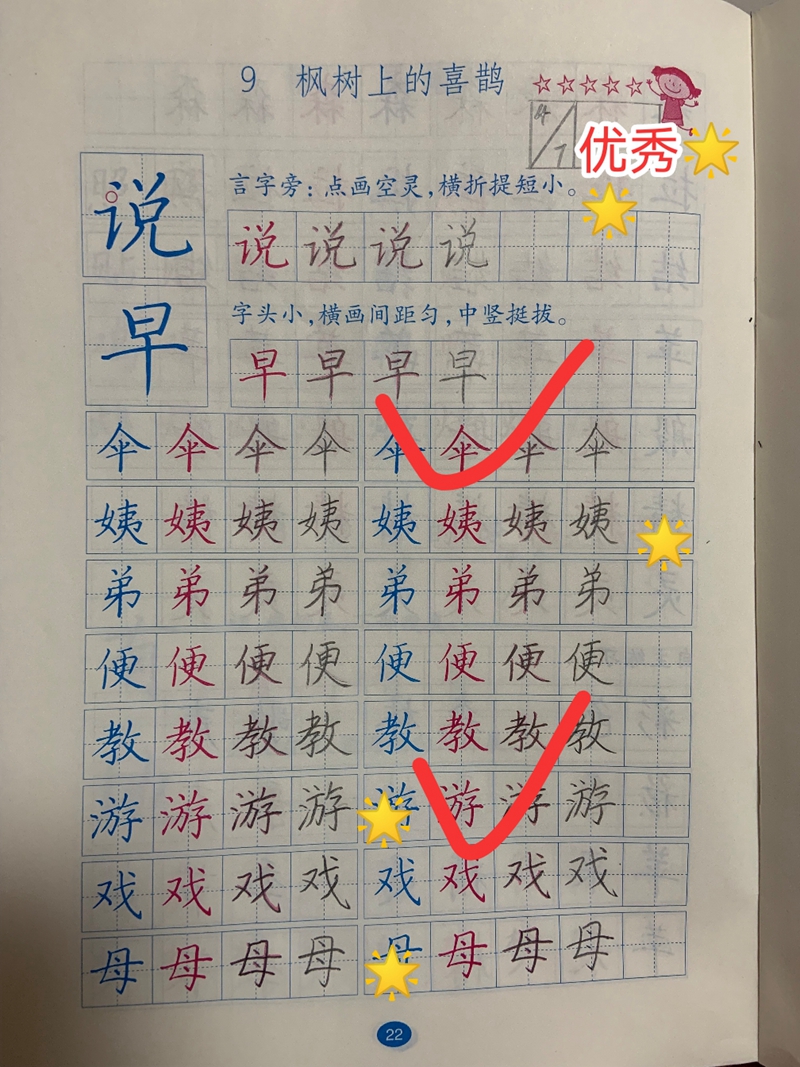 9 枫树上的喜鹊
4/7
优秀
说
言字旁：点画空灵，横折提短小。
说说说说
早
字头小，横画间距匀，中竖挺拔。
早早早早
伞伞伞伞伞伞伞伞
姨姨姨姨姨姨姨姨
弟弟弟弟弟弟弟弟
便便便便便便便便
教教教教教教教教
游游游游游游游游
戏戏戏戏戏戏戏戏
母母母母母母母母
22